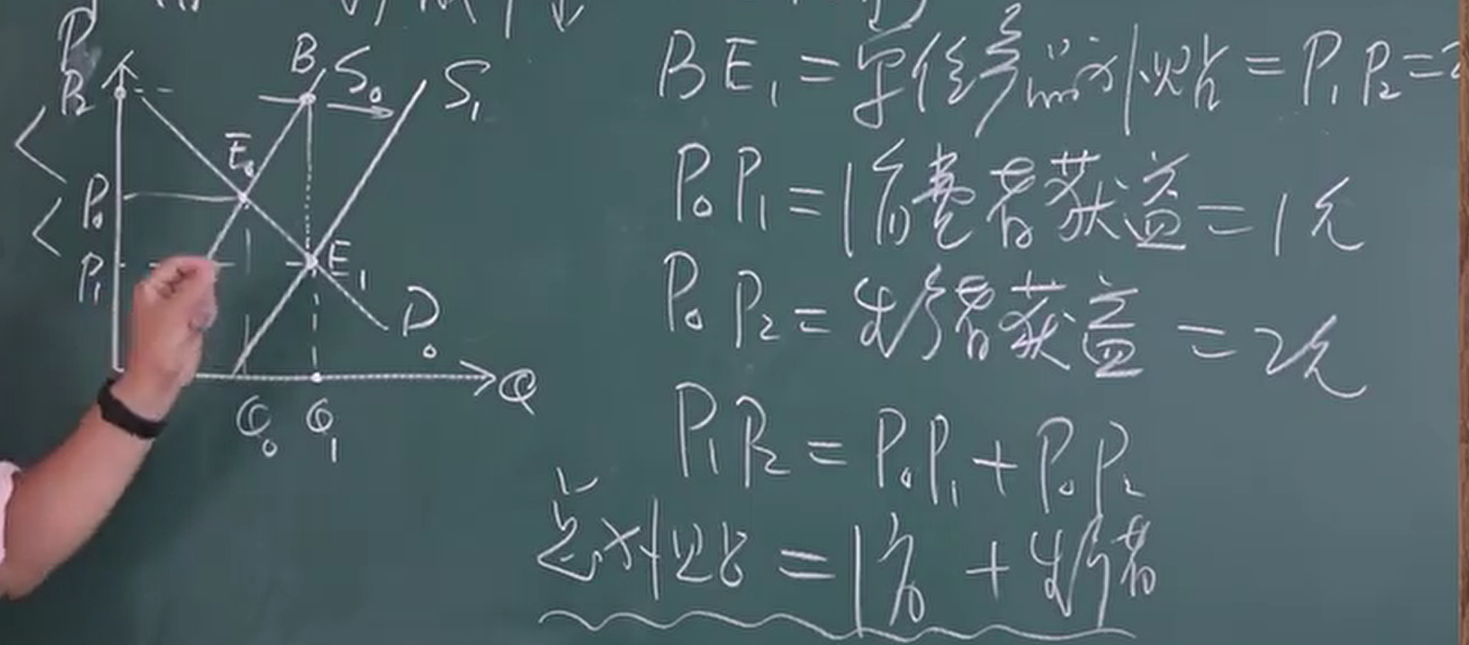 P
P₂
B S₀ S₁
E₀
P₀
P₁ E₁
D₀
Q
Q₀ Q₁
BE₁ = 单位产品补贴 = P₁P₂ =
P₀P₁ = 消费者获益 = 1元
P₀P₂ = 生产者获益 = 2元
P₁P₂ = P₀P₁ + P₀P₂
总补贴 = 消 + 生产者